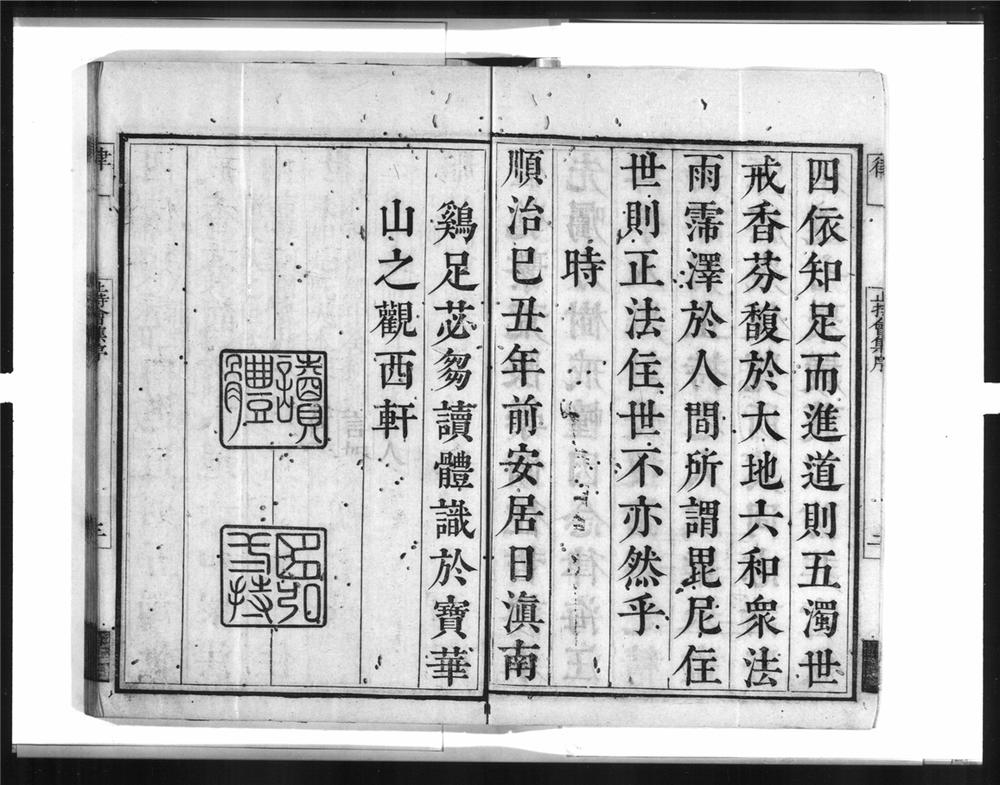 四依知足而進道則五濁世
戒香芬馥於大地六和衆法
雨霈澤於人間所謂毘尼住
世則正法住世不亦然乎
時
順治己丑年前安居日滇南
鷄足苾芻讀體識於寶華
山之觀西軒
讀體
止持會集序
律